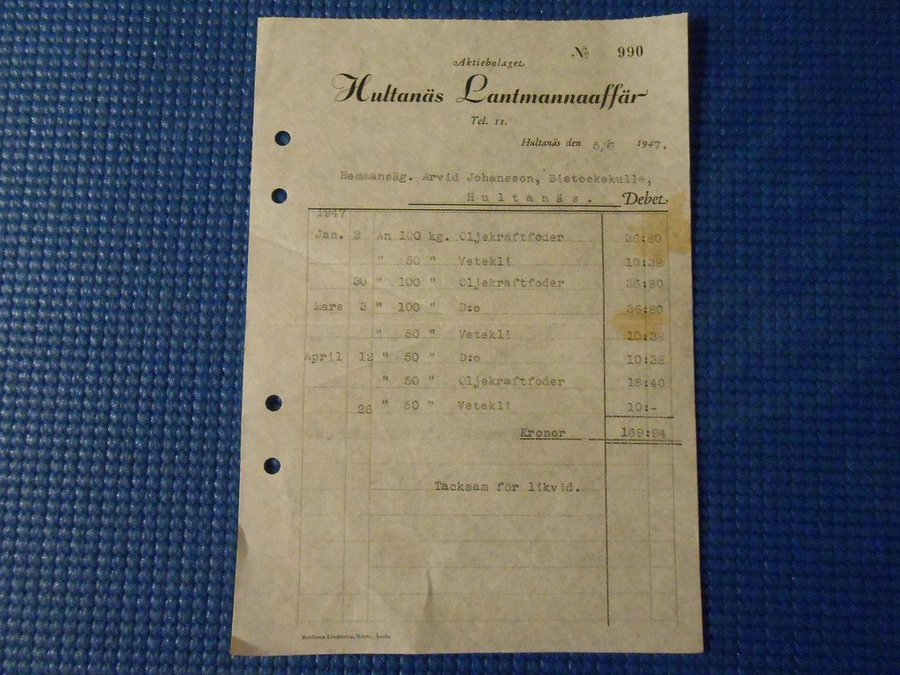 № 990
Aktiebolaget
Hultanäs Lantmannaaffär
Tel. 11.
Hultanäs den 5/6 1947.
Hemmansäg. Arvid Johansson, Bistockskulla,
Hultanäs. Debet
1947
Jan. 2 An 100 kg. Oljekraftfoder 36:80
" 50 " Vetekli 10:38
30 " 100 " Oljekraftfoder 36:80
Mars 3 " 100 " D:o 36:80
" 50 " Vetekli 10:38
April 12 " 50 " D:o 10:38
" 50 " Oljekraftfoder 18:40
26 " 50 " Vetekli 10:-
Kronor 169:94
Tacksam för likvid.
Bröderna Lindström, Boktr., Åseda